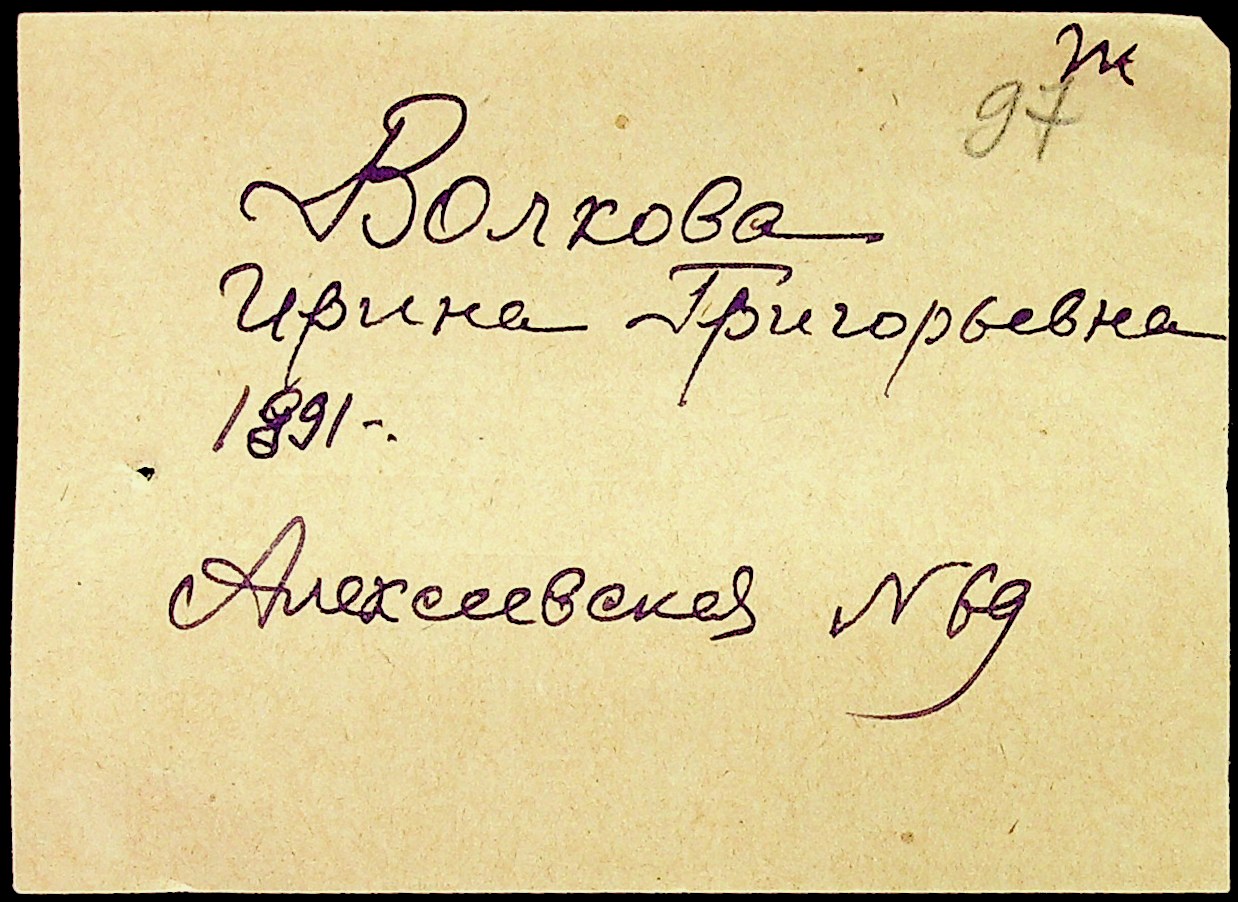 97
Волкова
Ирина Григорьевна
1891-.
Алексеевская N 69